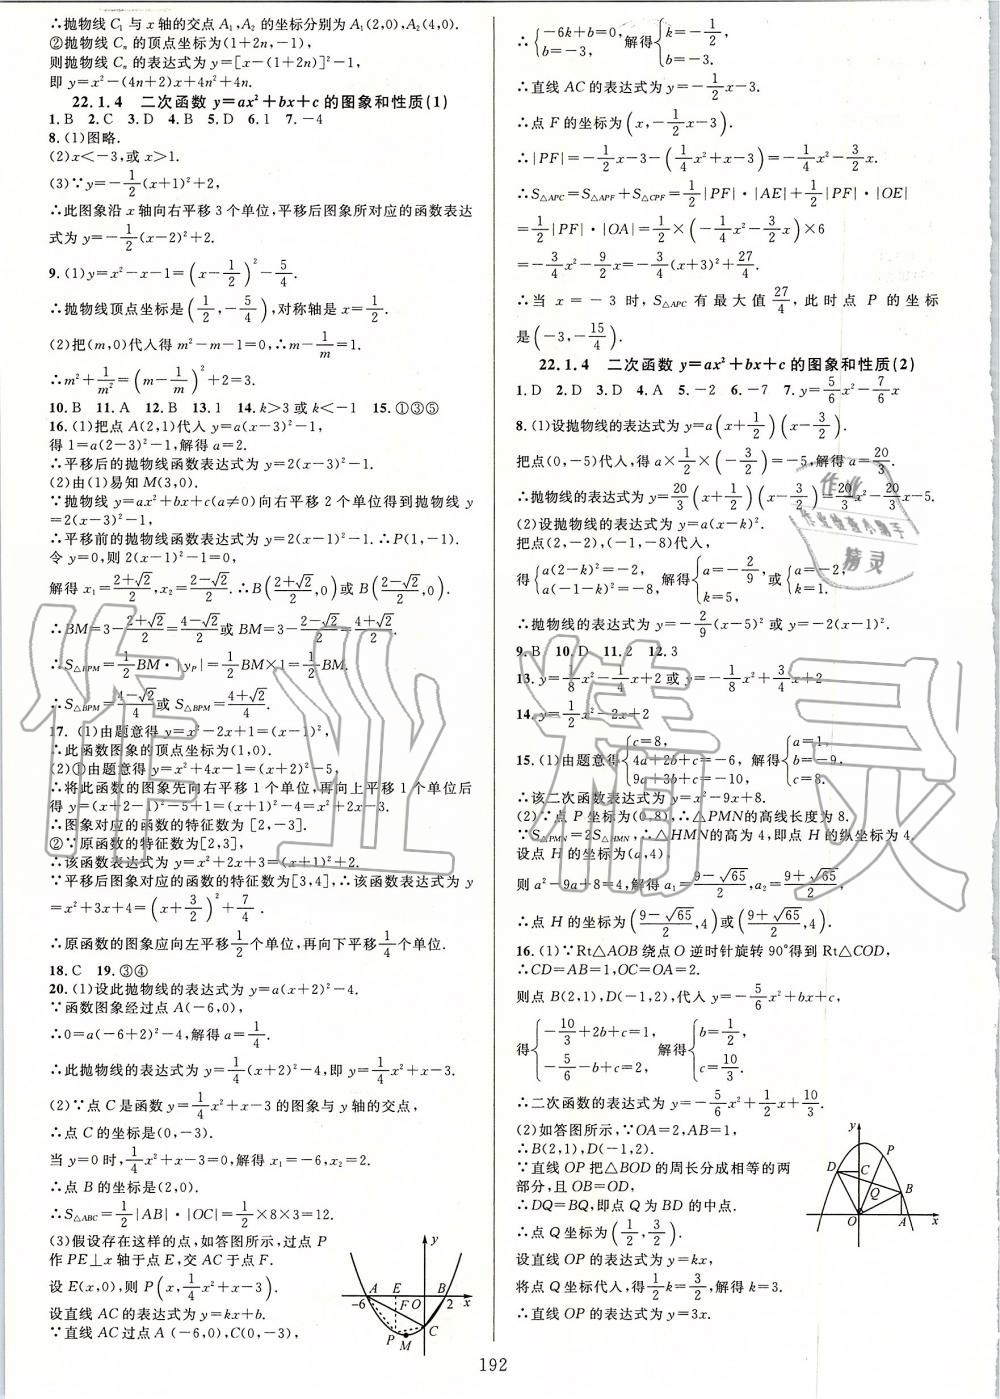 ∴抛物线 C₁ 与 x 轴的交点 A₁,A₂ 的坐标分别为 A₁(2,0),A₂(4,0).
②抛物线 Cₙ 的顶点坐标为(1+2n,−1),
则抛物线 Cₙ 的表达式为 y=[x−(1+2n)]²−1,
即 y=x²−(4n+2)x+4n²+4n.
22.1.4 二次函数 y=ax²+bx+c 的图象和性质(1)
1.B 2.C 3.D 4.B 5.D 6.1 7.−4
8.(1)图略.
(2)x<−3,或 x>1.
(3)∵y=−1/2(x+1)²+2,
∴此图象沿 x 轴向右平移 3 个单位,平移后图象所对应的函数表达
式为 y=−1/2(x−2)²+2.
9.(1)y=x²−x−1=(x−1/2)²−5/4.
∴抛物线顶点坐标是(1/2,−5/4),对称轴是 x=1/2.
(2)把(m,0)代入得 m²−m−1=0,∴m−1/m=1.
∴m²+1/m²=(m−1/m)²+2=3.
10.B 11.A 12.B 13.1 14.k>3 或 k<−1 15.①③⑤
16.(1)把点 A(2,1)代入 y=a(x−3)²−1,
得 1=a(2−3)²−1,解得 a=2.
∴平移后的抛物线函数表达式为 y=2(x−3)²−1.
(2)由(1)易知 M(3,0).
∵抛物线 y=ax²+bx+c(a≠0)向右平移 2 个单位得到抛物线 y
=2(x−3)²−1,
∴平移前的抛物线函数表达式为 y=2(x−1)²−1.∴P(1,−1).
令 y=0,则 2(x−1)²−1=0,
解得 x₁=(2+√2)/2,x₂=(2−√2)/2.∴B((2+√2)/2,0)或 B((2−√2)/2,0).
∴BM=3−(2+√2)/2=(4−√2)/2或 BM=3−(2−√2)/2=(4+√2)/2.
∴S△BPM=1/2BM·|yP|=1/2BM×1=1/2BM.
∴S△BPM=(4−√2)/4或 S△BPM=(4+√2)/4.
17.(1)由题意得 y=x²−2x+1=(x−1)²,
∴此函数图象的顶点坐标为(1,0).
(2)①由题意得 y=x²+4x−1=(x+2)²−5,
∴将此函数的图象先向右平移 1 个单位,再向上平移 1 个单位后
得 y=(x+2−1)²−5+1=(x+1)²−4=x²+2x−3.
∴图象对应的函数的特征数为[2,−3].
②∵原函数的特征数为[2,3],
∴该函数表达式为 y=x²+2x+3=(x+1)²+2.
∵平移后图象对应的函数的特征数为[3,4],∴该函数表达式为 y
=x²+3x+4=(x+3/2)²+7/4.
∴原函数的图象应向左平移1/2个单位,再向下平移1/4个单位.
18.C 19.③④
20.(1)设此抛物线的表达式为 y=a(x+2)²−4.
∵函数图象经过点 A(−6,0),
∴0=a(−6+2)²−4,解得 a=1/4.
∴此抛物线的表达式为 y=1/4(x+2)²−4,即 y=1/4x²+x−3.
(2)∵点 C 是函数 y=1/4x²+x−3 的图象与 y 轴的交点,
∴点 C 的坐标是(0,−3).
当 y=0 时,1/4x²+x−3=0,解得 x₁=−6,x₂=2.
∴点 B 的坐标是(2,0).
∴S△ABC=1/2|AB|·|OC|=1/2×8×3=12.
(3)假设存在这样的点,如答图所示,过点 P
作 PE⊥x 轴于点 E,交 AC 于点 F.
设 E(x,0),则 P(x,1/4x²+x−3).
设直线 AC 的表达式为 y=kx+b.
∵直线 AC 过点 A(−6,0),C(0,−3),
y
A E B
−6 F O 2 x
C
P M
∴{−6k+b=0, b=−3, 解得{k=−1/2, b=−3.
∴直线 AC 的表达式为 y=−1/2x−3.
∴点 F 的坐标为(x,−1/2x−3).
∴|PF|=−1/2x−3−(1/4x²+x−3)=−1/4x²−3/2x.
∴S△APC=S△APF+S△CPF=1/2|PF|·|AE|+1/2|PF|·|OE|
=1/2|PF|·|OA|=1/2×(−1/4x²−3/2x)×6
=−3/4x²−9/2x=−3/4(x+3)²+27/4.
∴当 x=−3 时,S△APC 有最大值27/4,此时点 P 的坐标
是(−3,−15/4).
22.1.4 二次函数 y=ax²+bx+c 的图象和性质(2)
1.D 2.D 3.D 4.A 5.−2 6.−7 7.y=5/6x²−7/6x
8.(1)设抛物线的表达式为 y=a(x+1/2)(x−3/2).
把点(0,−5)代入,得 a×1/2×(−3/2)=−5,解得 a=20/3.
∴抛物线的表达式为 y=20/3(x+1/2)(x−3/2)=20/3x²−20/3x−5.
(2)设抛物线的表达式为 y=a(x−k)².
把点(2,−2),(−1,−8)代入,
得{a(2−k)²=−2, a(−1−k)²=−8, 解得{a=−2/9, k=5, 或{a=−2, k=1.
∴抛物线的表达式为 y=−2/9(x−5)² 或 y=−2(x−1)².
9.B 10.D 11.2 12.3
13.y=1/8x²−1/4x+2 或 y=−1/8x²+3/4x+2
14.y=1/2x²−2x+2
15.(1)由题意得{c=8, 4a+2b+c=−6, 9a+3b+c=−10, 解得{a=1, b=−9, c=8.
∴该二次函数表达式为 y=x²−9x+8.
(2)∵点 P 坐标为(0,8),∴△PMN的高线长度为 8.
∵S△PMN=2S△HMN,∴△HMN的高为 4,即点 H 的纵坐标为 4.
设点 H 的坐标为(a,4),
则 a²−9a+8=4,解得 a₁=(9−√65)/2,a₂=(9+√65)/2,
∴点 H 的坐标为((9−√65)/2,4)或((9+√65)/2,4).
16.(1)∵Rt△AOB 绕点 O 逆时针旋转 90°得到 Rt△COD,
∴CD=AB=1,OC=OA=2.
则点 B(2,1),D(−1,2),代入 y=−5/6x²+bx+c,
得{−10/3+2b+c=1, −5/6−b+c=2, 解得{b=1/2, c=10/3.
∴二次函数的表达式为 y=−5/6x²+1/2x+10/3.
(2)如答图所示,∵OA=2,AB=1,
∴B(2,1),D(−1,2).
∵直线 OP 把△BOD 的周长分成相等的两
部分,且 OB=OD,
∴DQ=BQ,即点 Q 为 BD 的中点.
∴点 Q 坐标为(1/2,3/2).
设直线 OP 的表达式为 y=kx,
将点 Q 坐标代入,得1/2k=3/2,解得 k=3.
∴直线 OP 的表达式为 y=3x.
y
P
D C
Q B
O A x
192
作业精灵
作业检查小助手
作业
精灵